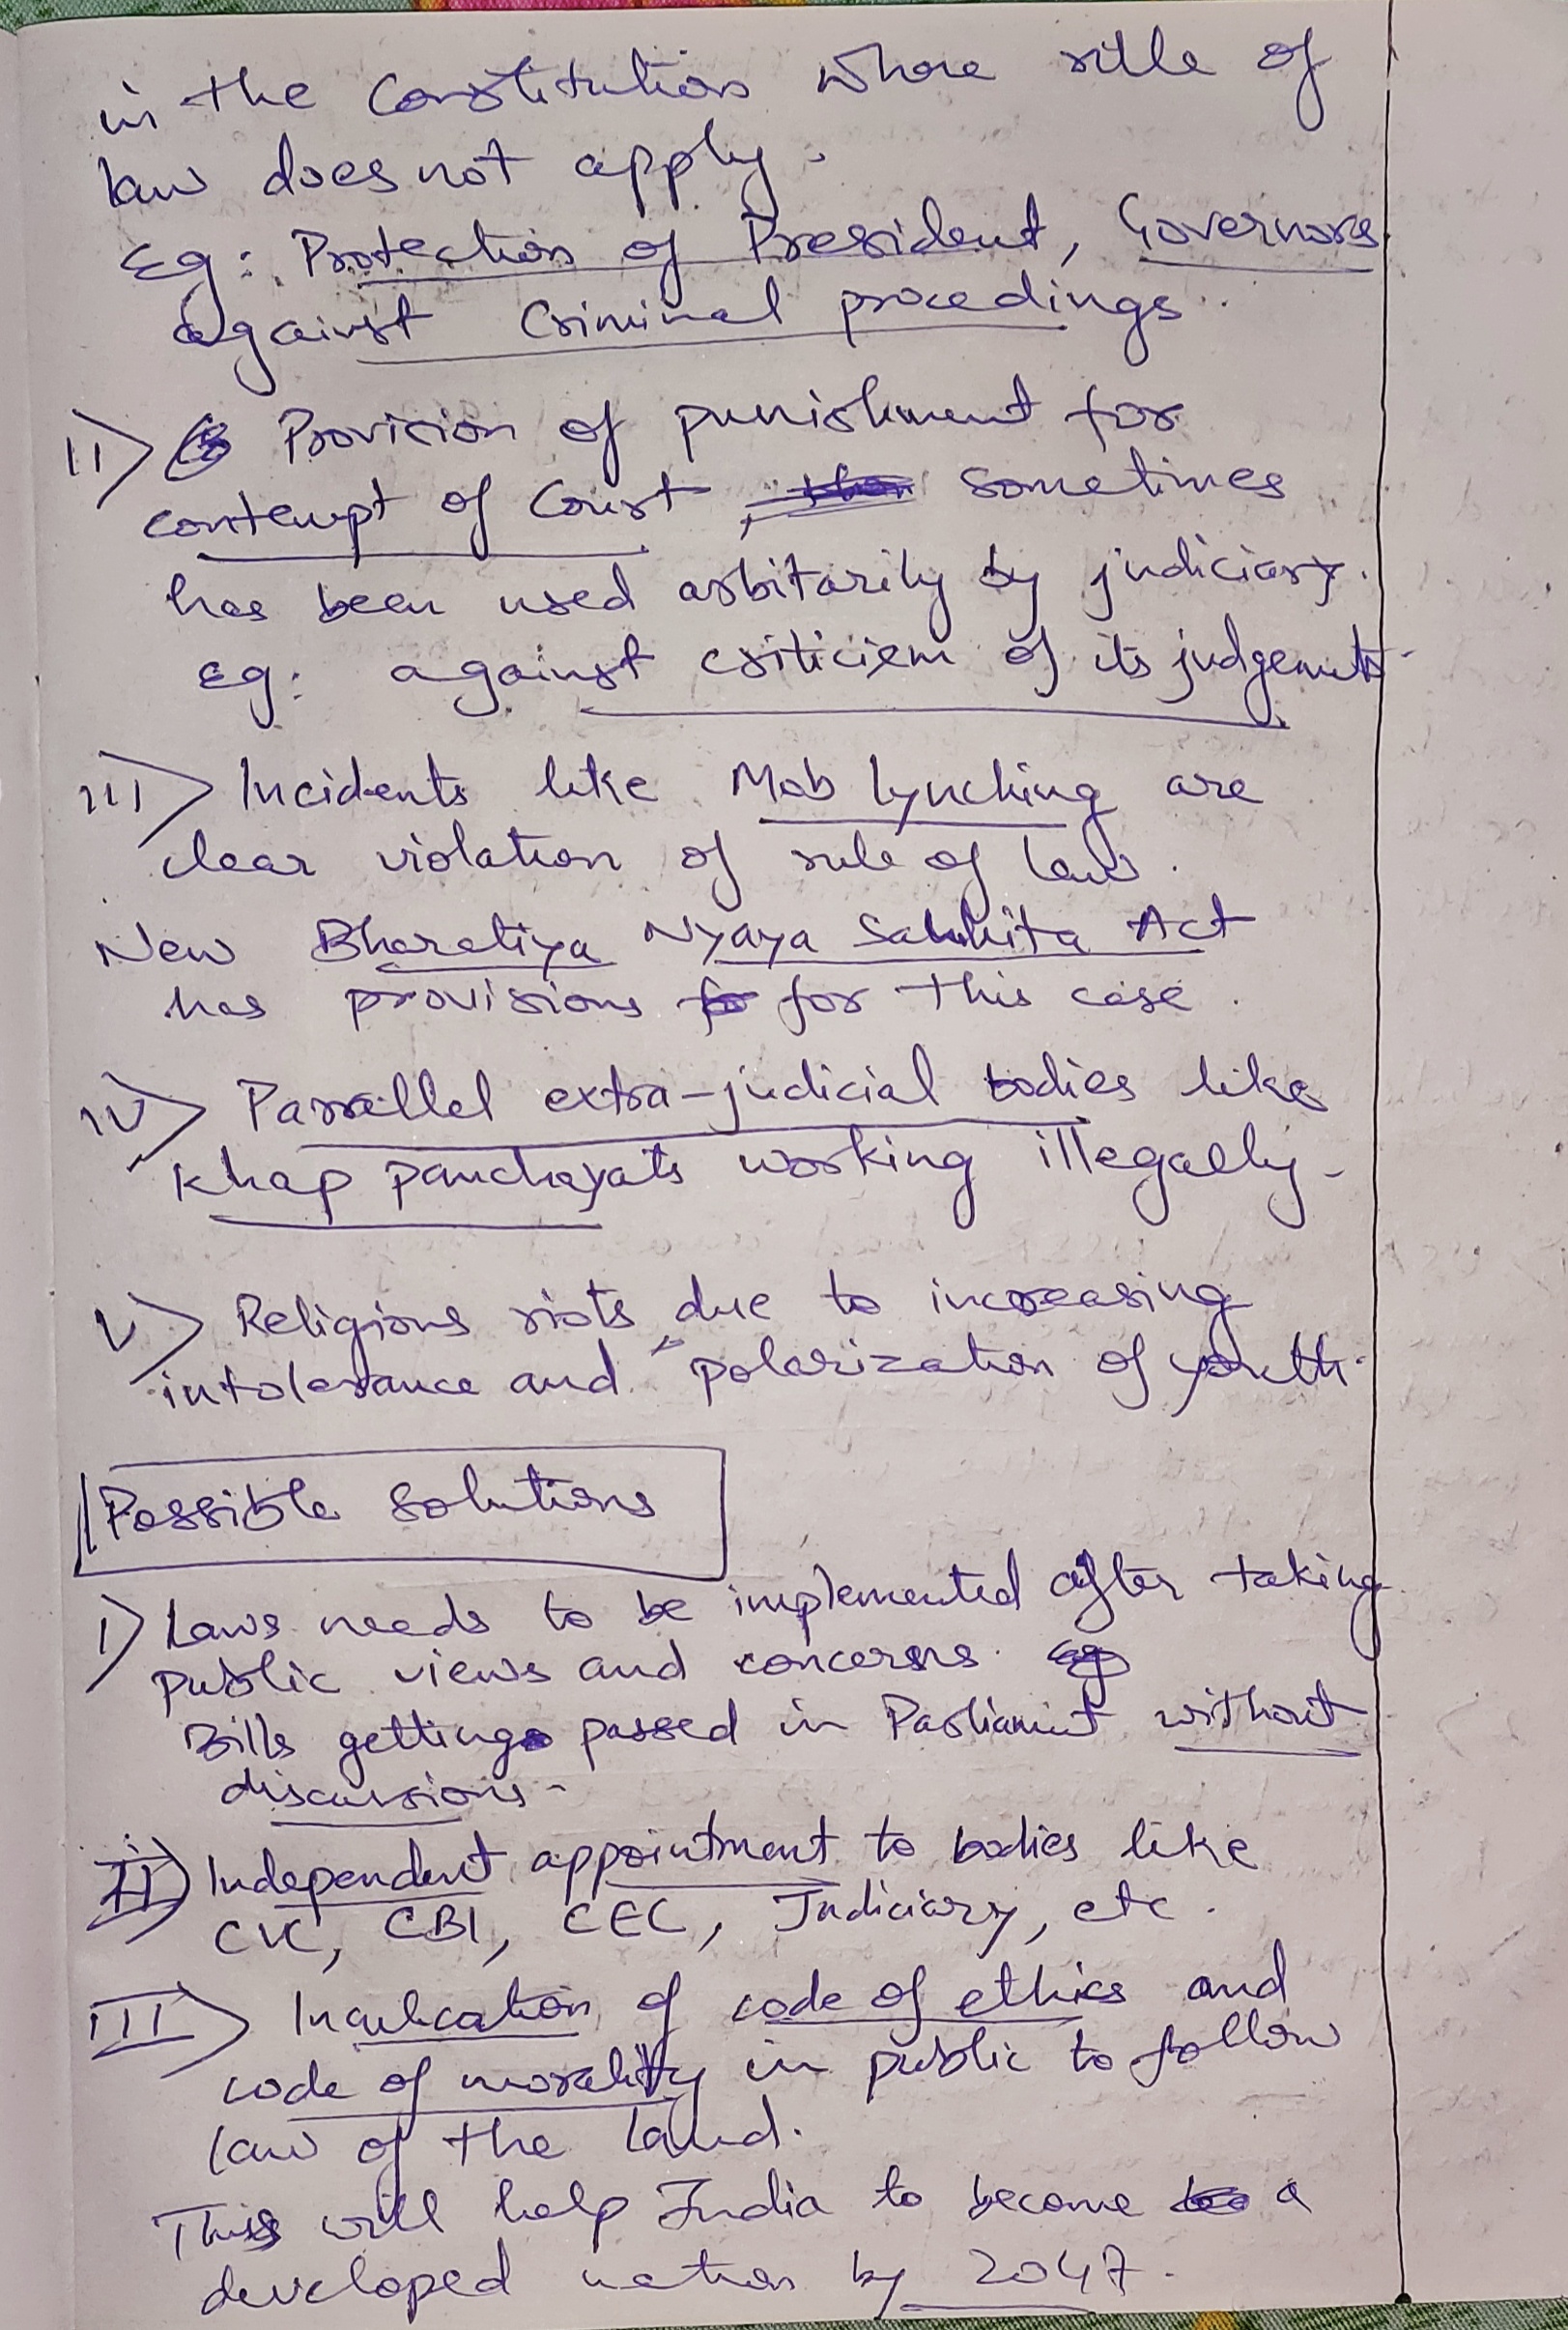 in the Constitution where rule of
law does not apply.
Eg: Protection of President, Governors
against Criminal procedings.
II> Provision of punishment for
contempt of Court, sometimes
has been used arbitarily by judiciary.
eg: against criticism of its judgements
III> Incidents like Mob lynching are
clear violation of rule of law.
New Bharatiya Nyaya Sanhita Act
has provisions for this case.
IV> Parrallel extra-judicial bodies like
Khap panchayats working illegally.
V> Religious riots due to increasing
intolerance and polarization of youth.
Possible solutions
I> Laws needs to be implemented after taking
public views and concerns. eg
Bills getting passed in Parliament without
discussions.
II> Independent appointment to bodies like
CVC, CBI, CEC, Judiciary, etc.
III> Inculcation of code of ethics and
code of morality in public to follow
law of the land.
This will help India to become a
developed nation by 2047.